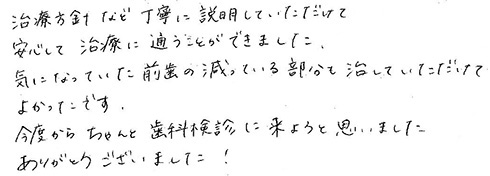 治療方針など丁寧に説明していただけて
安心して治療に通うことができました。
気になっていた前歯の減っている部分も治していただけて
よかったです。
今度からちゃんと歯科検診に来ようと思いました
ありがとうございました!